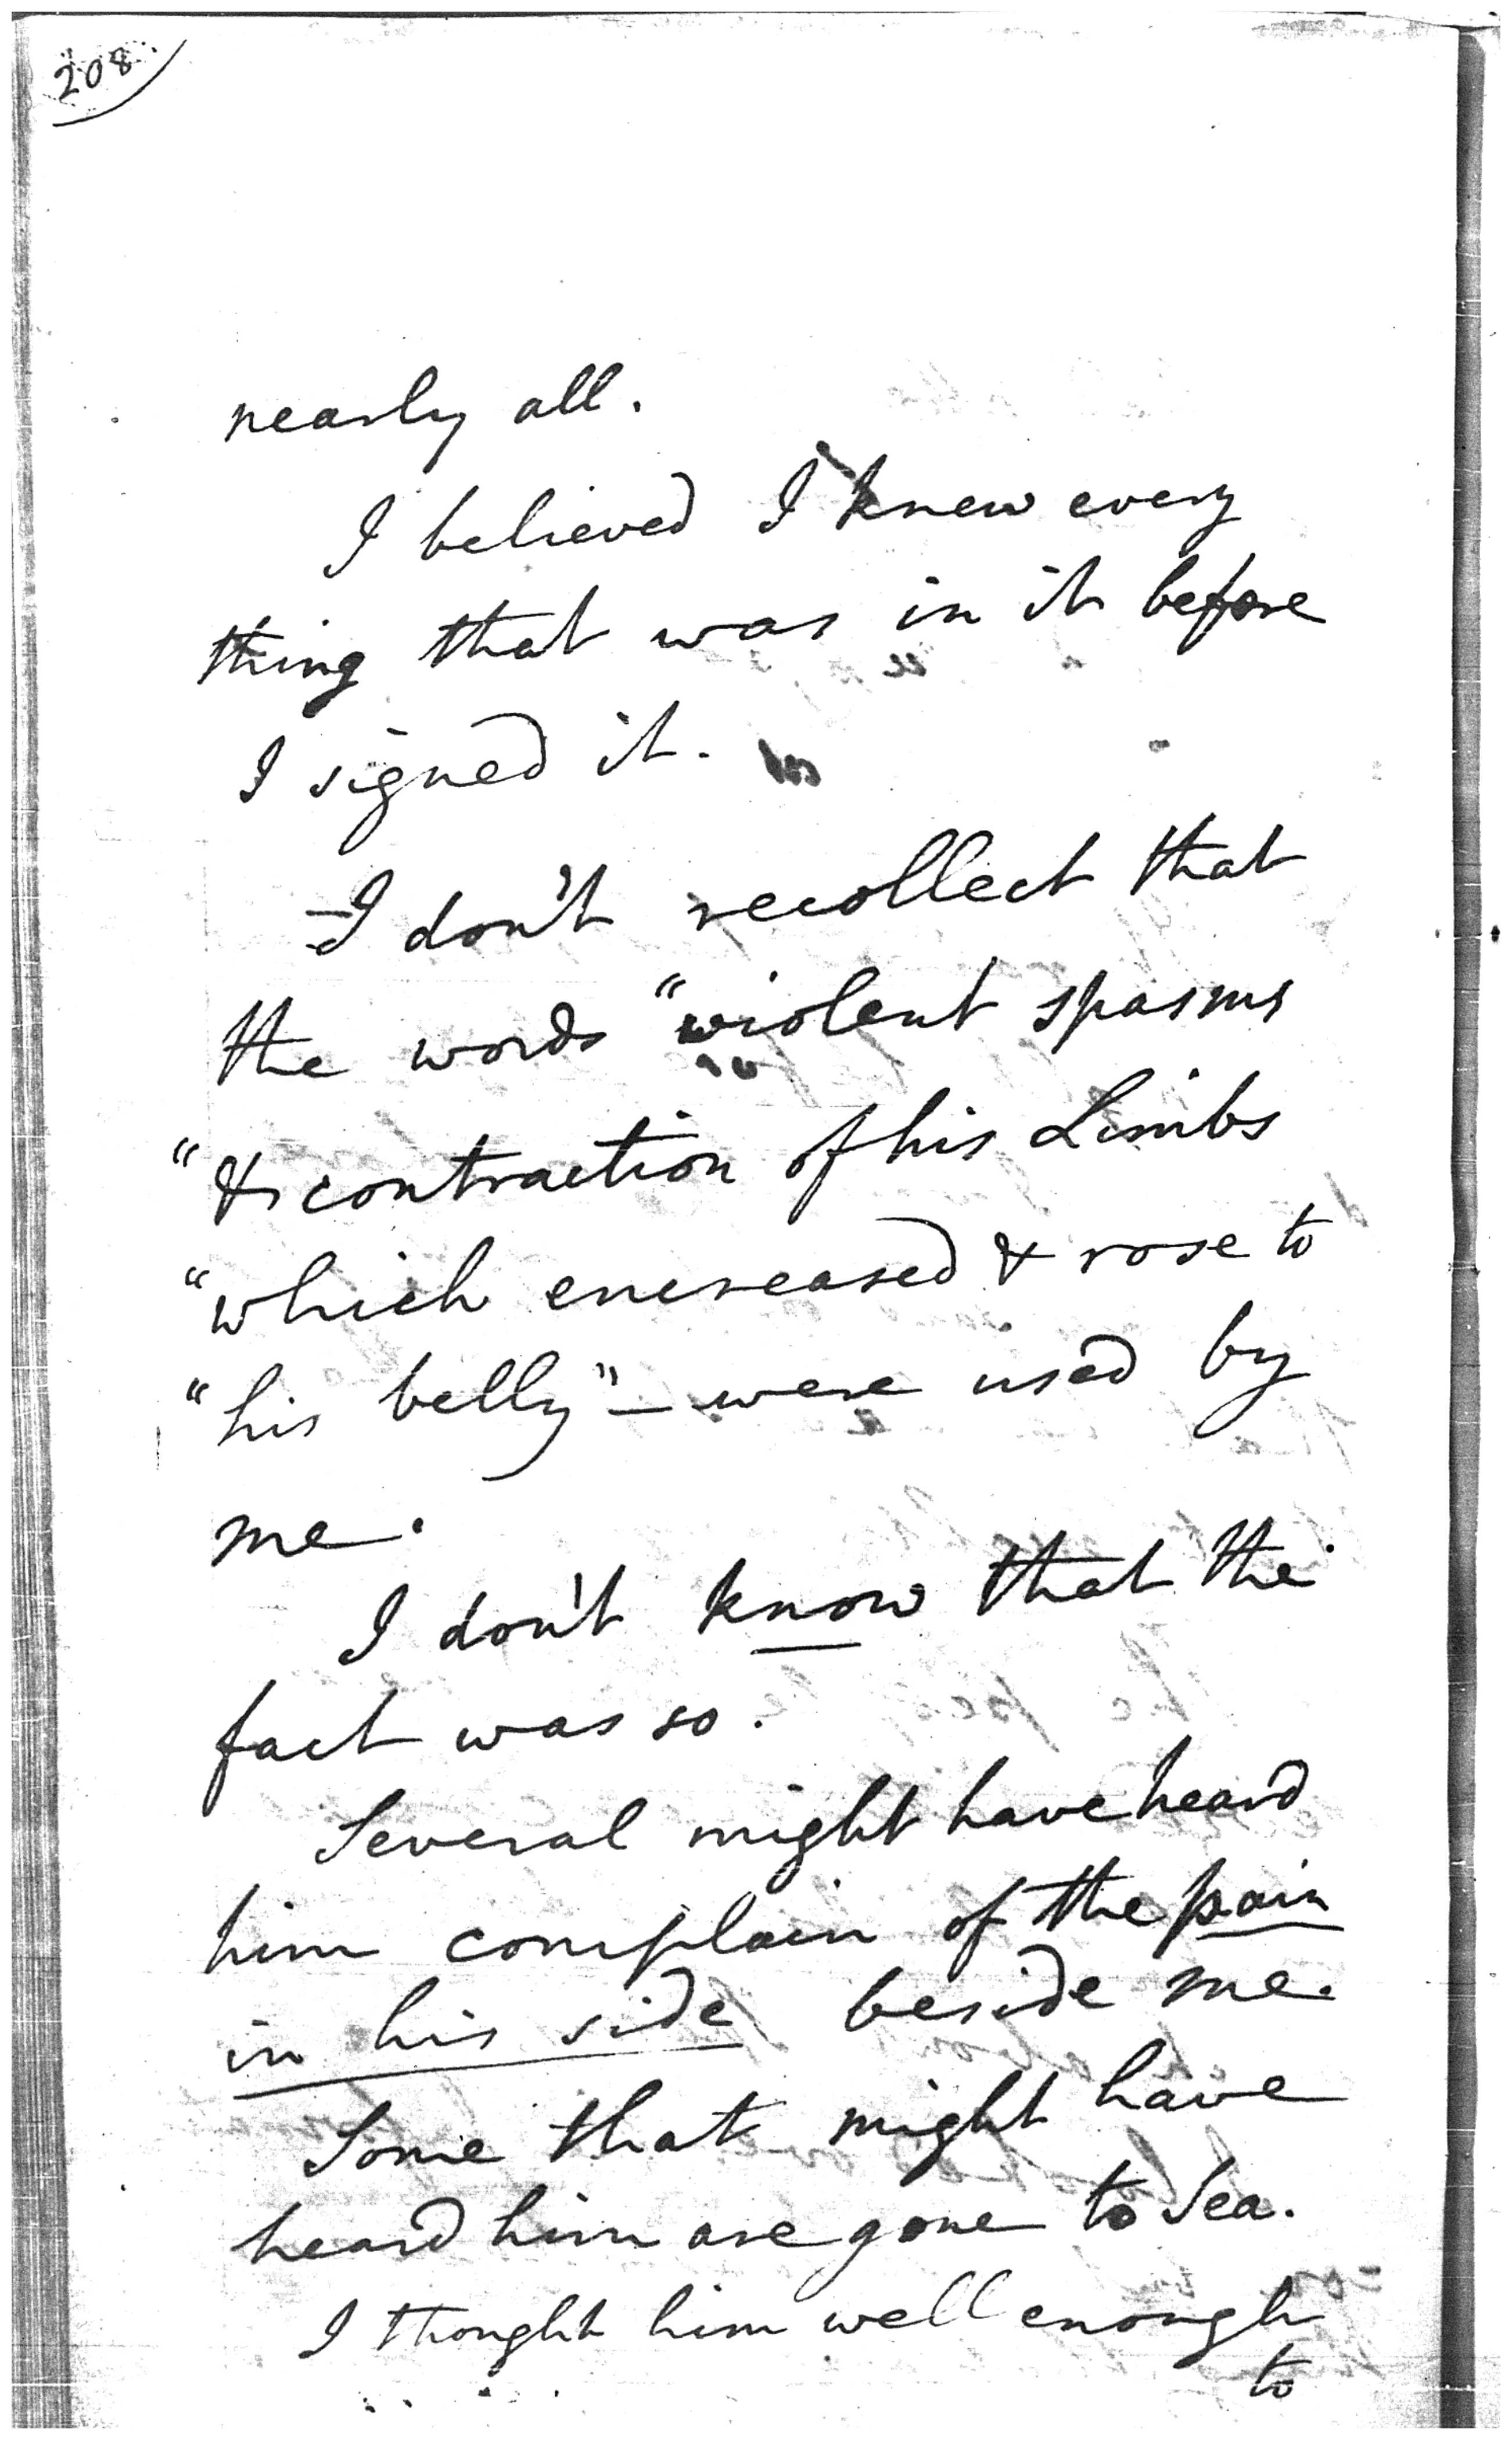 208
nearly all.
I believed I knew every
thing that was in it before
I signed it.
-I don't recollect that
the words "violent spasms
"& contraction of his Limbs
"which encreased & rose to
"his belly" - were used by
me.
I don't know that the
fact was so.
Several might have heard
him complain of the pain
in his side beside me.
Some that might have
heard him are gone to Sea.
I thought him well enough
to